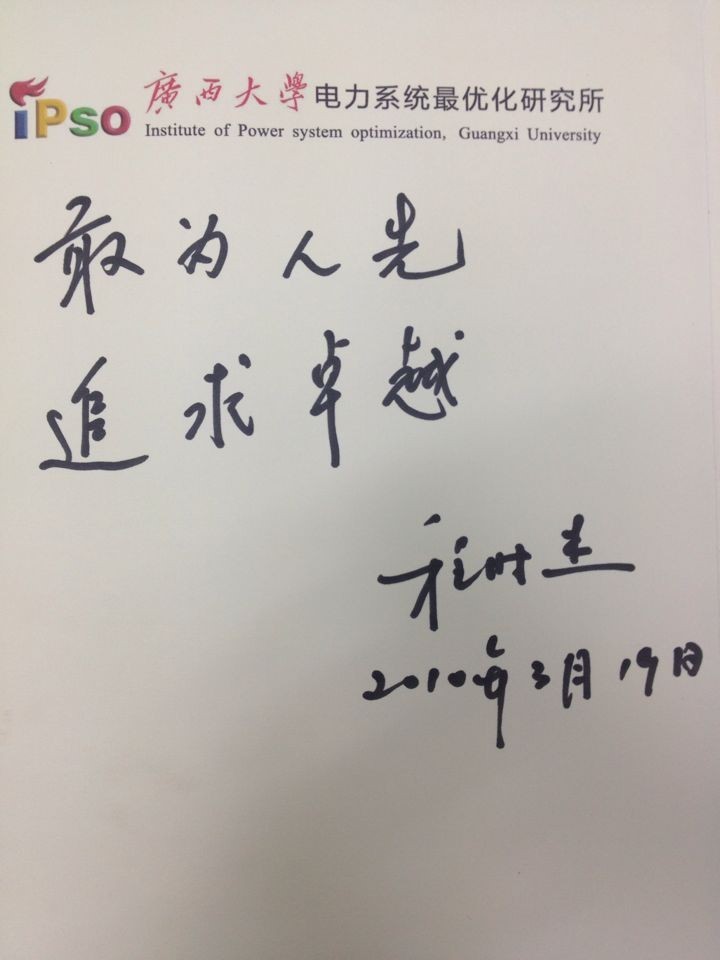 iPso 廣西大學电力系统最优化研究所
Institute of Power system optimization, Guangxi University
敢为人先
追求卓越
程时杰
2010年3月19日